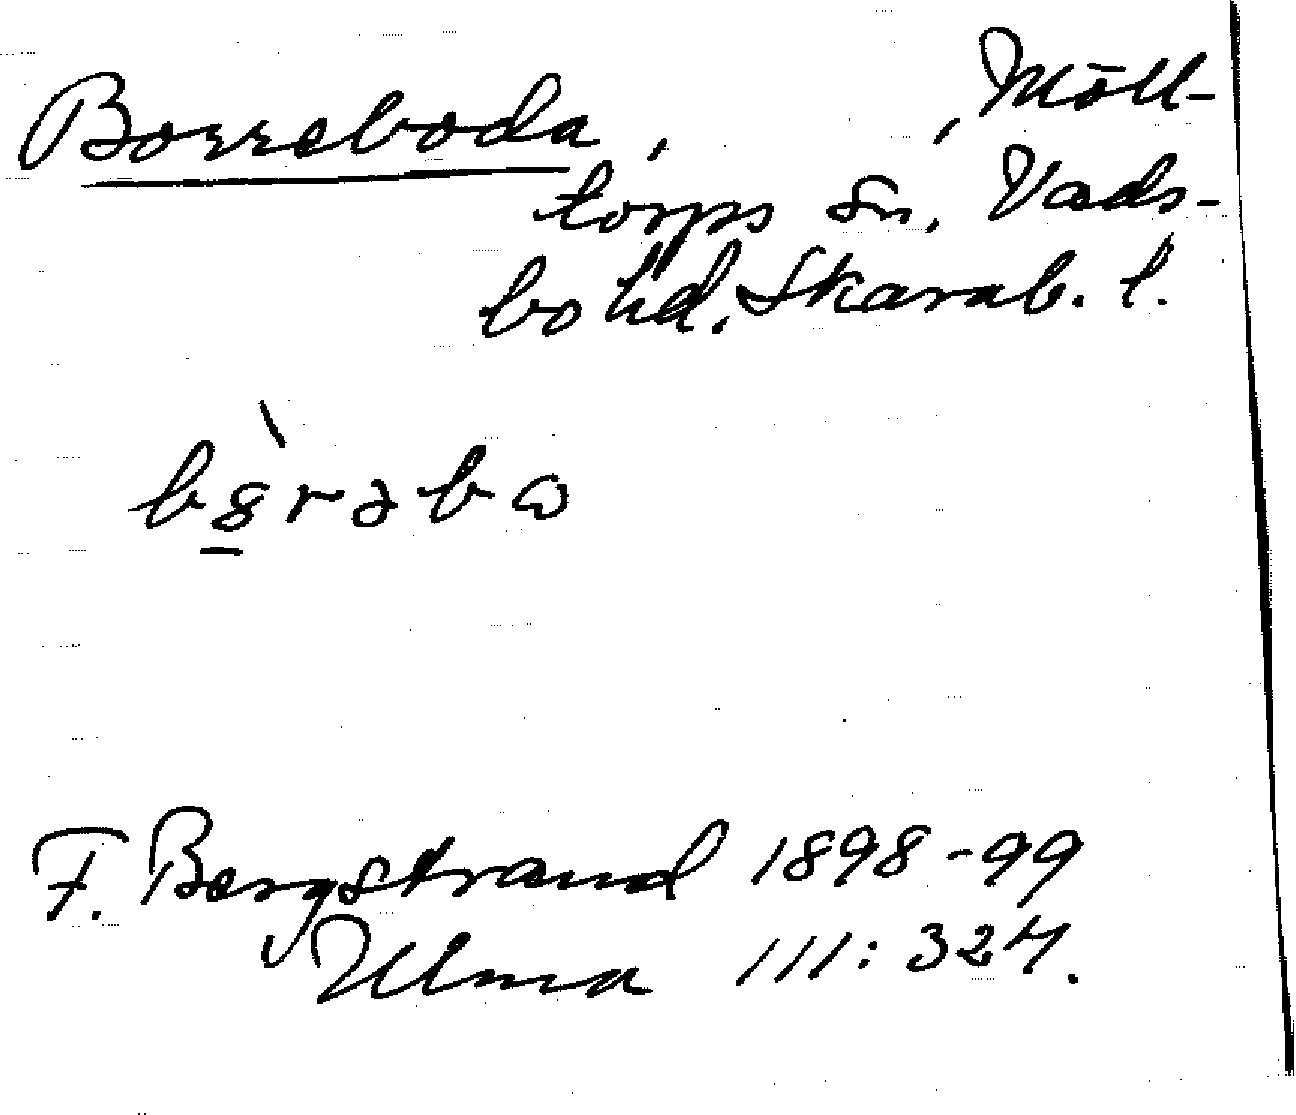 Borreboda, , Möll-
torps sn, Vads-
bo hd. Skarab. l.
b8̲̀rəbɷ
F. Bergstrand 1898-99
Ulma 111: 327.